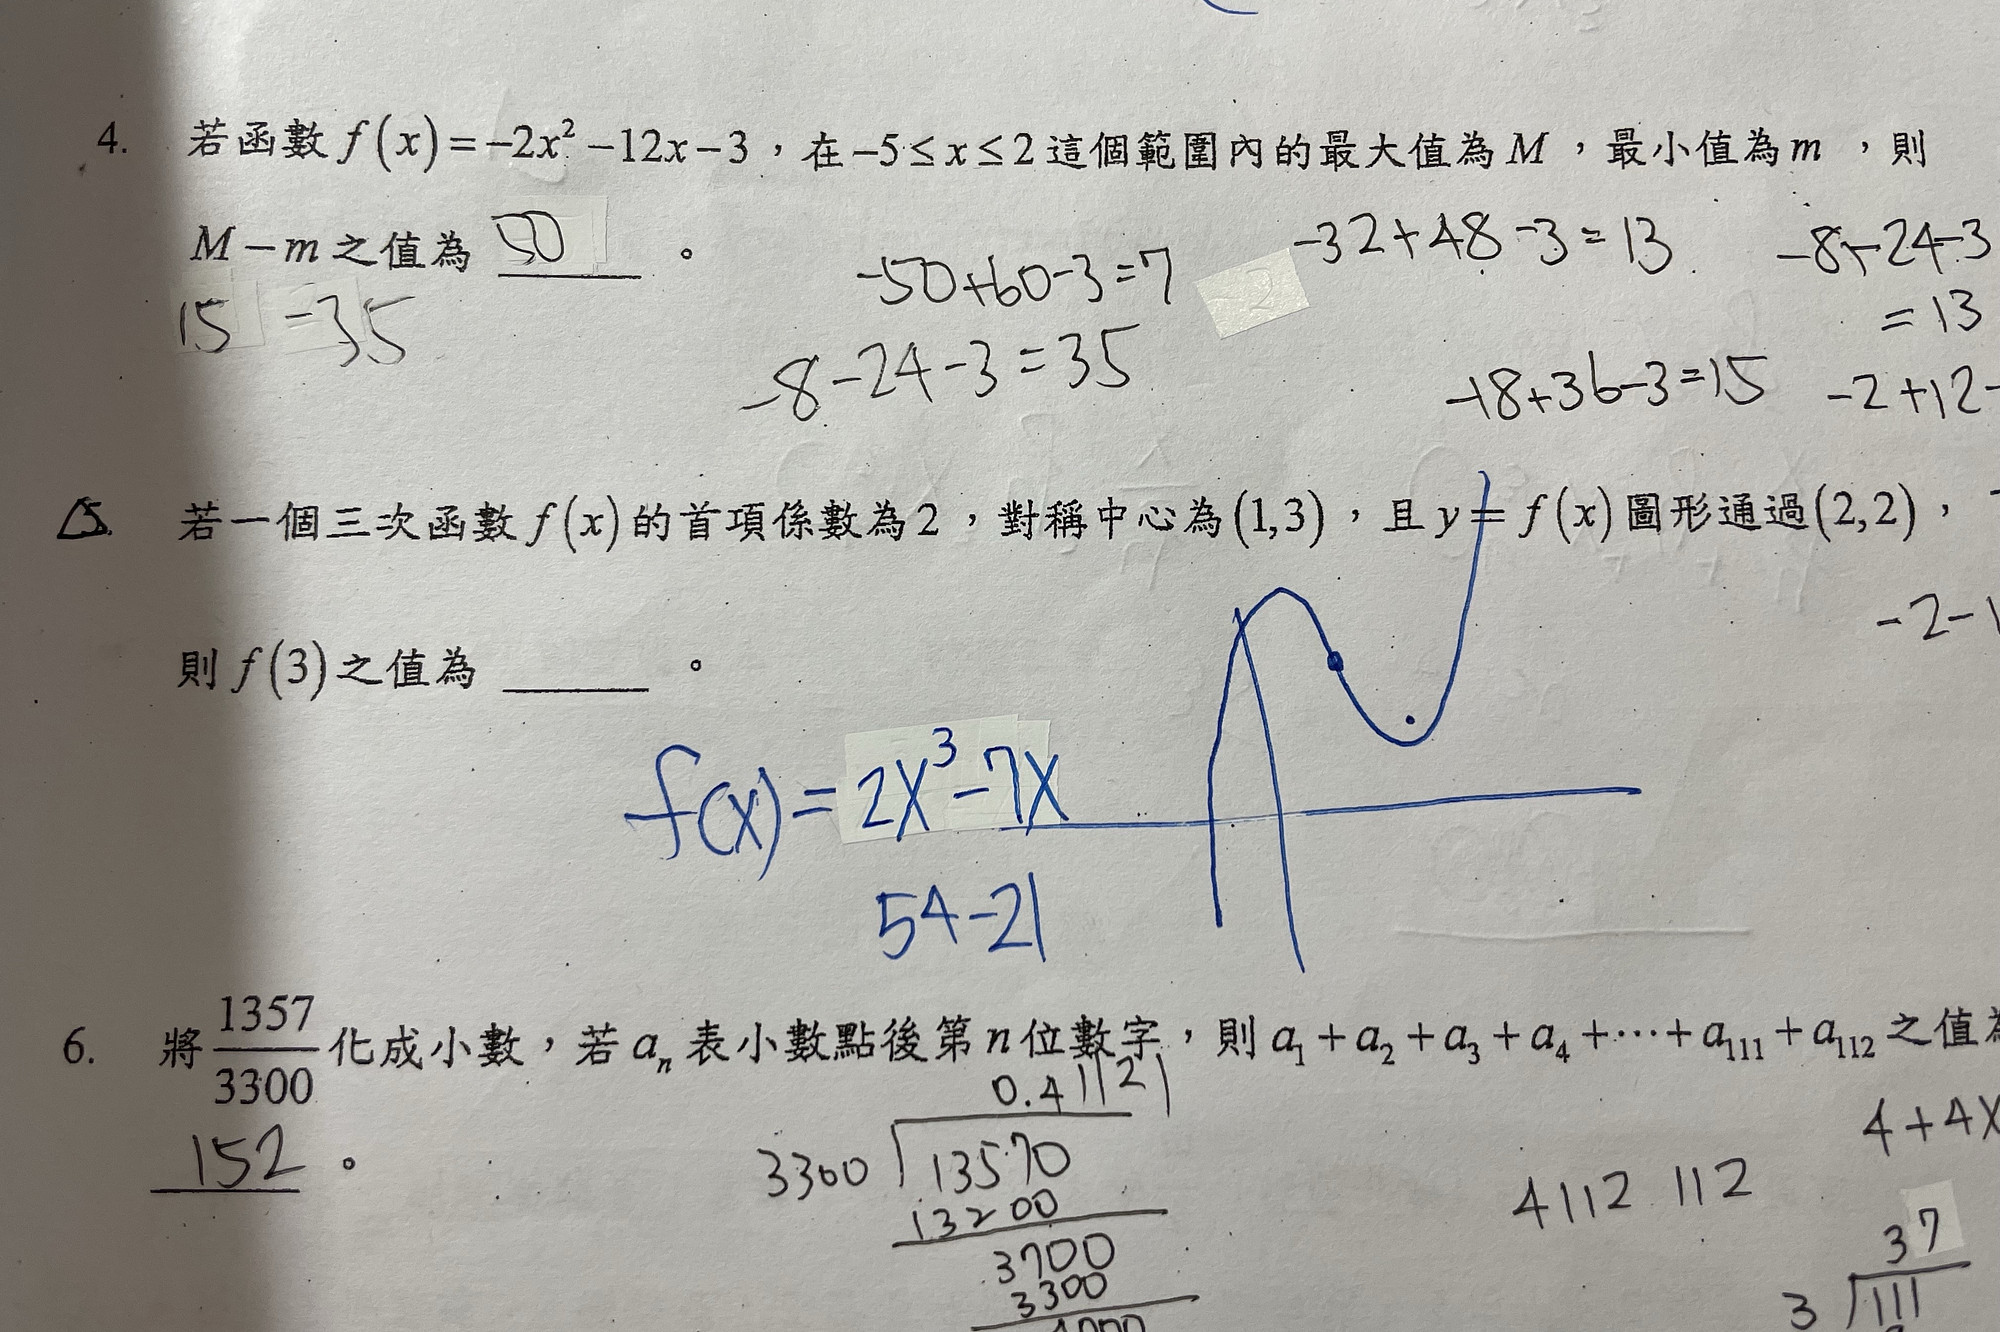 4. 若函數 f(x)=-2x²-12x-3，在 -5≤x≤2 這個範圍內的最大值為 M ，最小值為 m ，則
M-m 之值為 50 。
15 -35
-50+60-3=7
-2
-32+48-3=13
-8+24-3
=13
-8-24-3=35
-18+36-3=15
-2+12-
5. 若一個三次函數 f(x) 的首項係數為 2 ，對稱中心為 (1,3) ，且 y=f(x) 圖形通過 (2,2) ，
-2-1
則 f(3) 之值為 ＿＿＿ 。
f(x)=2x³-7x
54-21
6. 將 1357/3300 化成小數，若 aₙ 表小數點後第 n 位數字，則 a₁+a₂+a₃+a₄+⋯+a₁₁₁+a₁₁₂ 之值為
152 。
0.41121
3300 13570
13200
3700
3300
4000
4112 112
4+4x
37
3 111